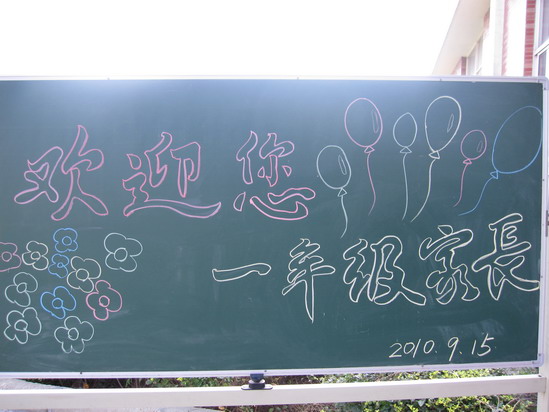 欢迎您
一年级家長
2010.9.15